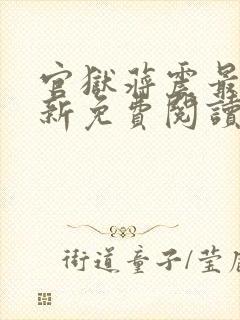 官獄蔣震最
新免費閱讀
街道童子/莹